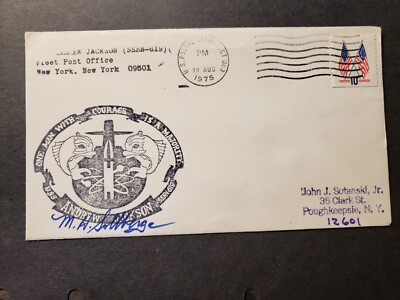 ANDREW JACKSON (SSBN-619)
Fleet Post Office
New York, New York 09501
U.S. POSTAL
PM
19 AUG
1975
10
ONE MAN WITH COURAGE IS A MAJORITY
USS ANDREW JACKSON SSBN-619
John J. Sotanski, Jr.
35 Clark St.
Poughkeepsie, N. Y.
12601